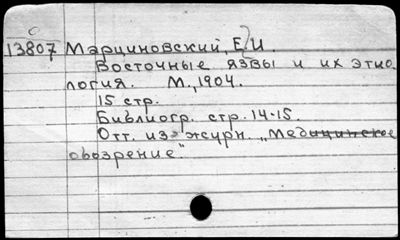 С
13807 Марциновский, Е.И.
Восточные язвы и их этио
логия. М., 1904.
15 стр.
Библиогр. стр. 14-15.
Отт. из журн. „Медицинское
обозрение".